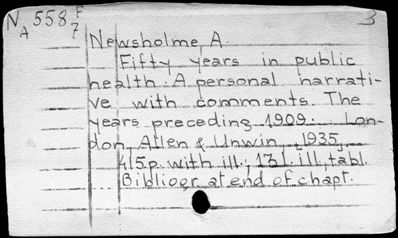 N 558 F 3
A 7
Newsholme, A.
Fifty years in public
health: A personal narrati-
ve, with comments. The
years preceding 1909. Lon-
don, Allen & Unwin, 1935,
415p. with ill.; 13 l. ill, tabl.
Bibliogr. at end of chapt.